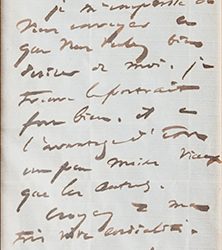 je m'empresse de
vous envoyer ce
que vous voulez bien
désirer de moi. je
trouve le portrait
fort bien, et a
l'avantage d'être
un peu moins vieux
que les autres.
croyez à ma
très vive cordialité.